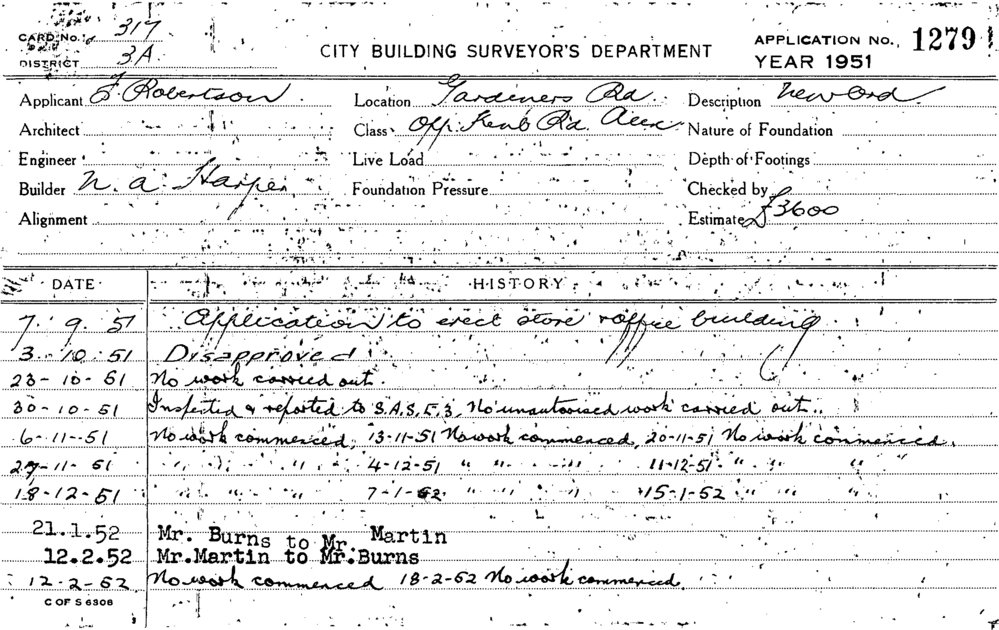 CARD No. 317
DISTRICT 3A
CITY BUILDING SURVEYOR'S DEPARTMENT
APPLICATION No. 1279
YEAR 1951
Applicant F. Robertson Location Gardiners Rd. Description New Ord
Architect Class Opp. Kent Rd. Alex Nature of Foundation
Engineer Live Load Depth of Footings
Builder N. A. Harper Foundation Pressure Checked by
Alignment Estimate £3600
DATE HISTORY
7. 9. 51 Application to erect store & office building
3. 10. 51 Disapproved
23-10-51 No work carried out.
30-10-51 Inspected & reported to S.A.S.E.3. No unautorised work carried out.
6-11-51 No work commenced, 13-11-51 No work commenced, 20-11-51 No work commenced.
27-11-51 " " " " 4-12-51 " " " 11-12-51 " " "
18-12-51 " " " " 7-1-52 " " " " 15-1-52 " " "
21.1.52 Mr. Burns to Mr Martin
12.2.52 Mr.Martin to Mr.Burns
12-2-52 No work commenced 18-2-52 No work commenced.
C OF S 6306